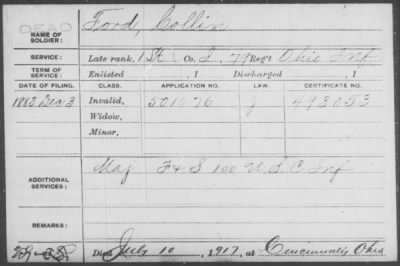 DEAD
NAME OF SOLDIER: Ford, Collin
SERVICE: Late rank, 1 St Co. I, 79 Reg't Ohio Inf
TERM OF SERVICE: Enlisted , 1 Discharged , 1
DATE OF FILING. CLASS. APPLICATION NO. LAW. CERTIFICATE NO.
1883 Dec 3 Invalid, 501076 J 493053
Widow,
Minor,
ADDITIONAL SERVICES: Maj F & S 100 U S C Inf
REMARKS:
Died July 10, 1917, at Cincinnati, Ohio